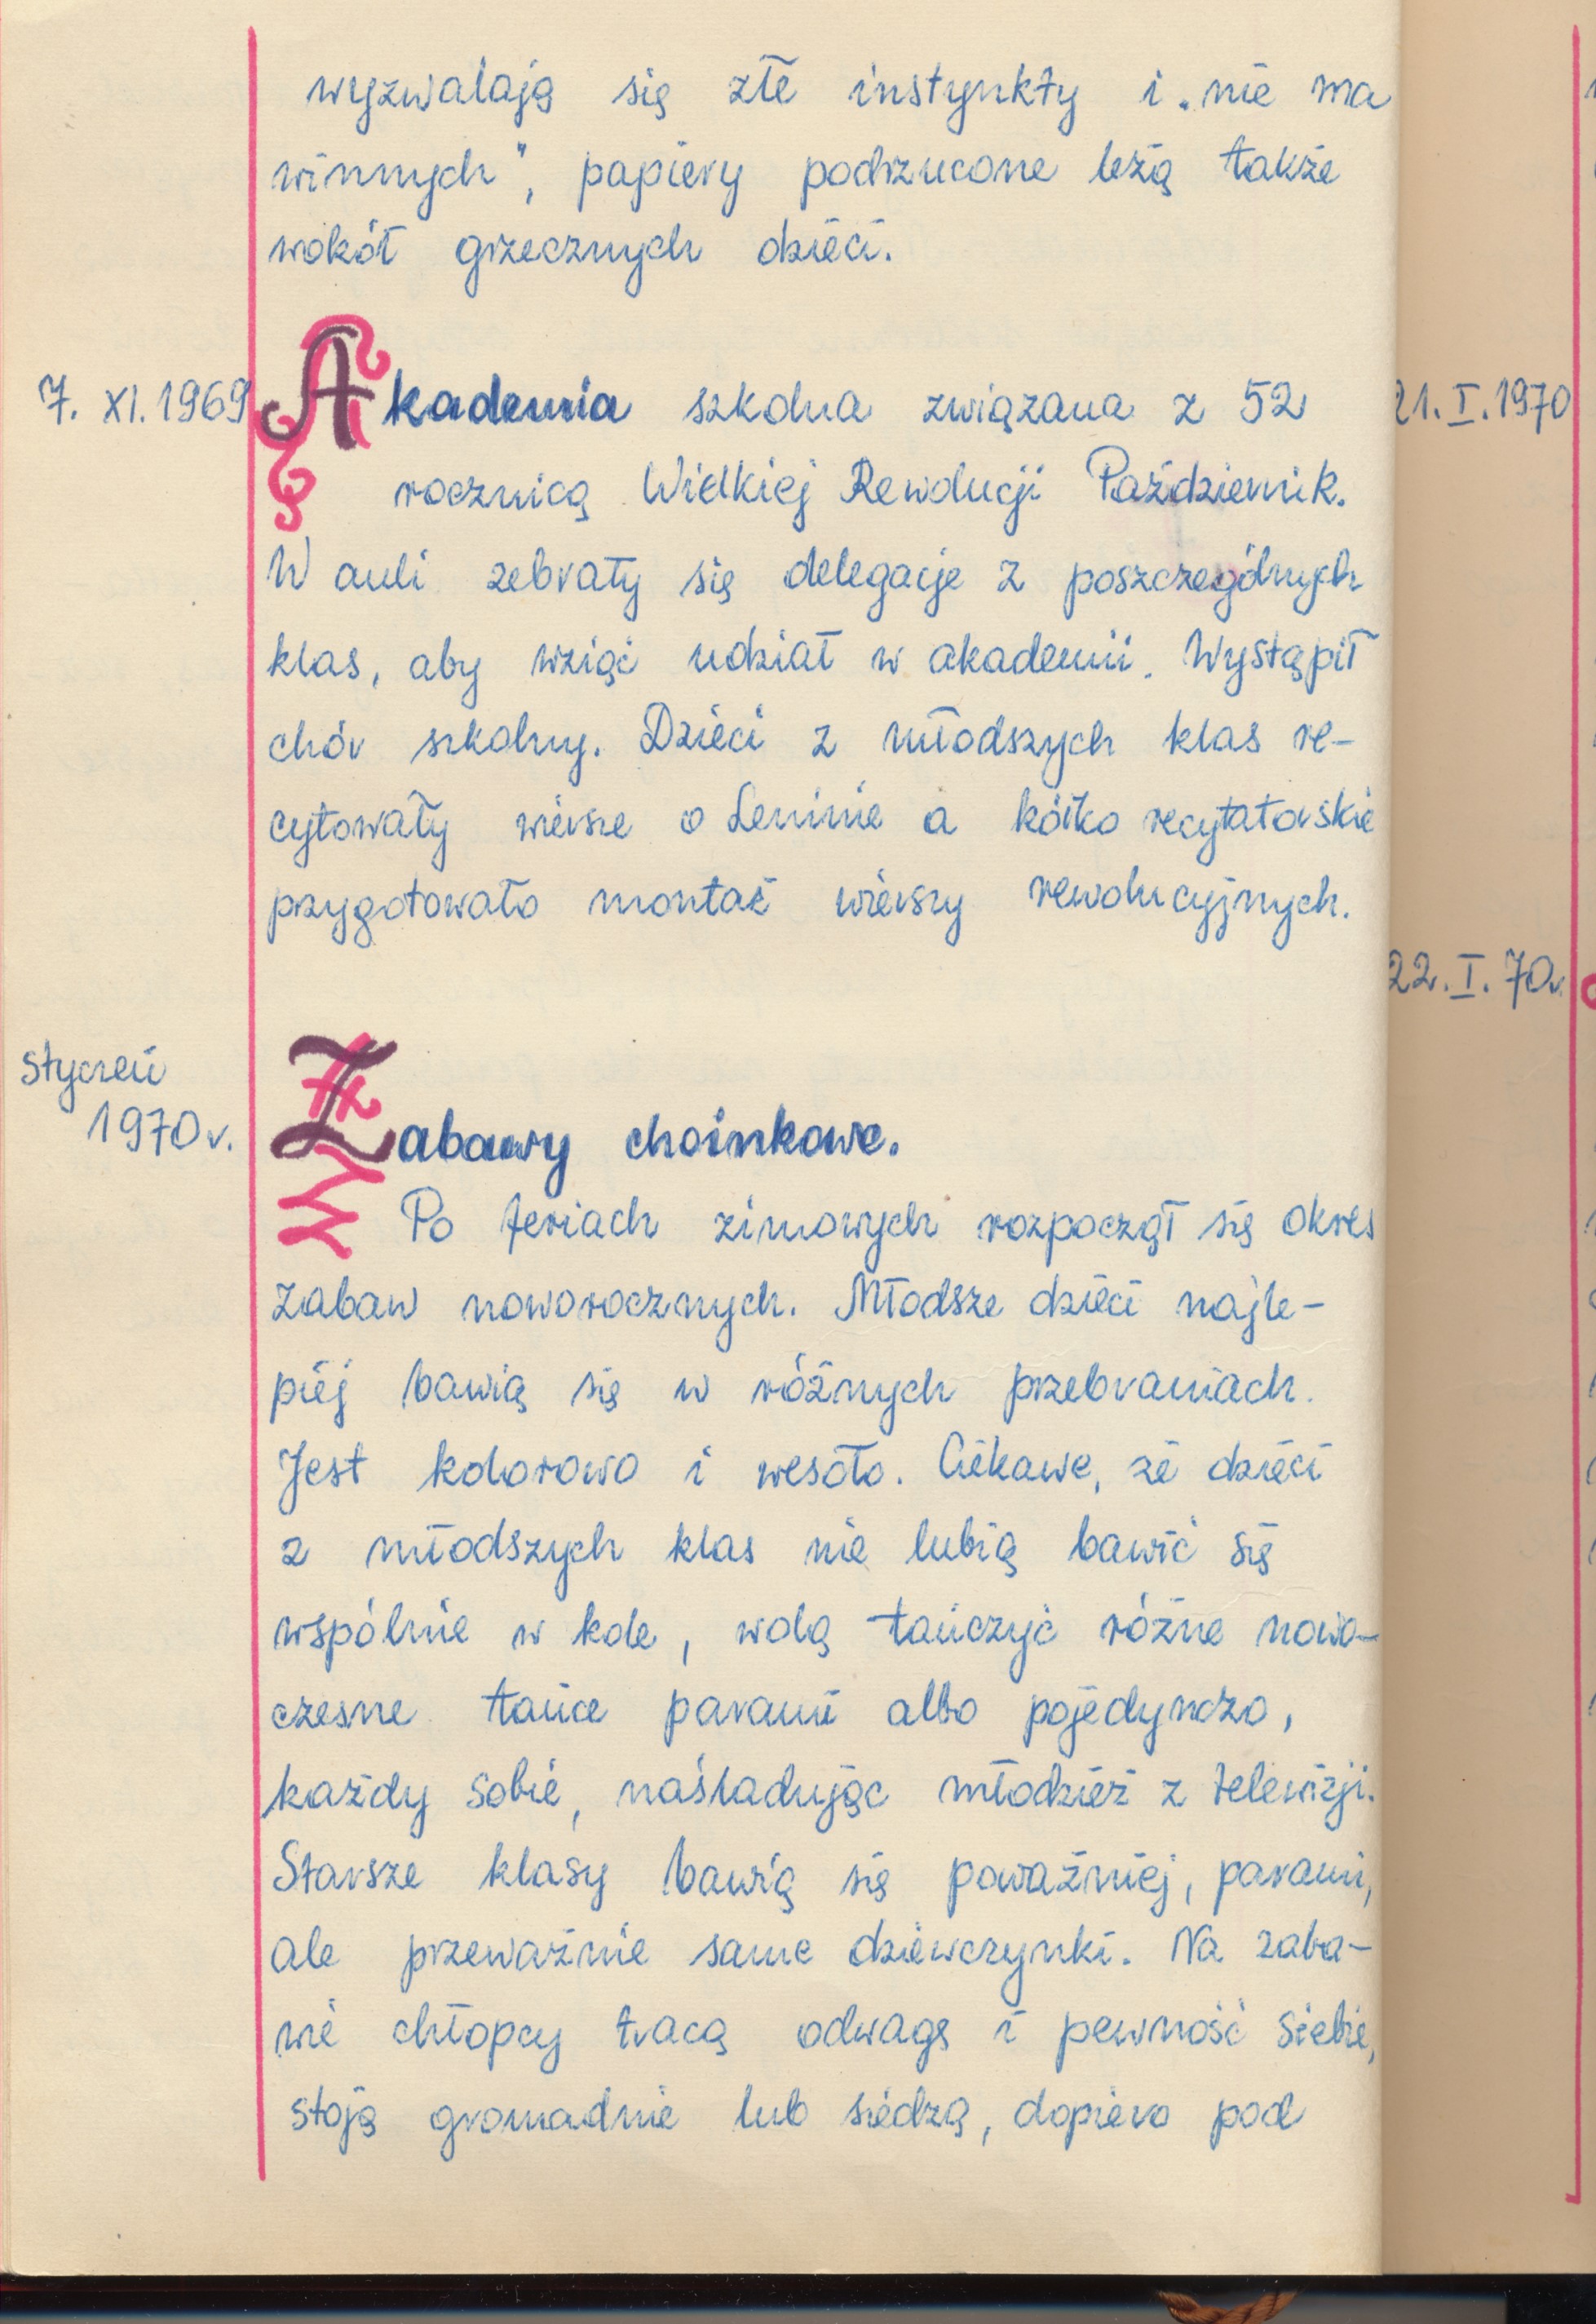 wyzwalają się złe instynkty i „nie ma
winnych", papiery podrzucone leżą także
wokół grzecznych dzieci.
7. XI. 1969
Akademia szkolna związana z 52
rocznicą Wielkiej Rewolucji Październik.
W auli zebrały się delegacje z poszczególnych
klas, aby wziąć udział w akademii. Wystąpił
chór szkolny. Dzieci z młodszych klas re-
cytowały wiersze o Leninie a kółko recytatorskie
przygotowało montaż wierszy rewolucyjnych.
styczeń
1970 r.
Zabawy choinkowe.
Po feriach zimowych rozpoczął się okres
zabaw noworocznych. Młodsze dzieci najle-
piej bawią się w różnych przebraniach.
Jest kolorowo i wesoło. Ciekawe, że dzieci
z młodszych klas nie lubią bawić się
wspólnie w kole, wolą tańczyć różne nowo-
czesne tańce parami albo pojedynczo,
każdy sobie, naśladując młodzież z telewizji.
Starsze klasy bawią się poważniej, parami,
ale przeważnie same dziewczynki. Na zaba-
wie chłopcy tracą odwagę i pewność siebie,
stoją gromadnie lub siedzą, dopiero pod
21. I. 1970
22. I. 70 r.